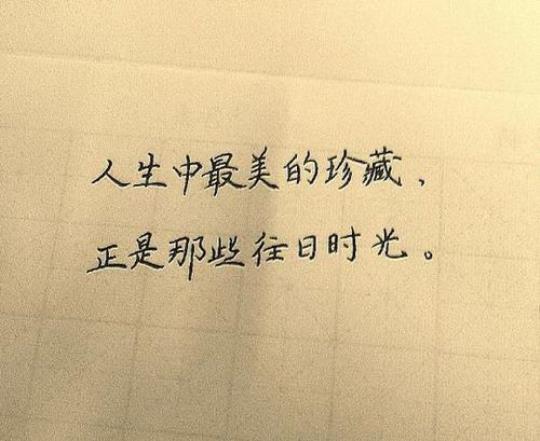 人生中最美的珍藏，
正是那些往日时光。